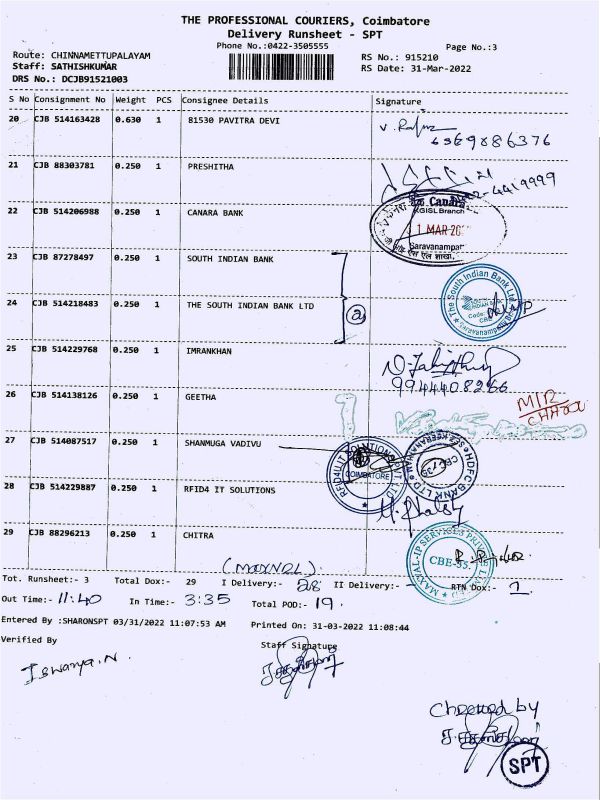 THE PROFESSIONAL COURIERS, Coimbatore
Delivery Runsheet - SPT
Phone No.:0422-3505555
Page No.:3
Route: CHINNAMETTUPALAYAM
RS No.: 915210
Staff: SATHISHKUMAR
RS Date: 31-Mar-2022
DRS No.: DCJB91521003
S No Consignment No Weight PCS Consignee Details Signature
20 CJB 514163428 0.630 1 81530 PAVITRA DEVI
6369886376
21 CJB 88303781 0.250 1 PRESHITHA
22 CJB 514206988 0.250 1 CANARA BANK
Canara
KGISL Branch
1 MAR 20
Saravanampat
23 CJB 87278497 0.250 1 SOUTH INDIAN BANK
24 CJB 514218483 0.250 1 THE SOUTH INDIAN BANK LTD
2
The South Indian Bank Ltd
25 CJB 514229768 0.250 1 IMRANKHAN
9944408266
26 CJB 514138126 0.250 1 GEETHA
27 CJB 514087517 0.250 1 SHANMUGA VADIVU
RFID4U IT SOLUTIONS PVT. LTD
COIMBATORE
HDFC BANK LTD
28 CJB 514229887 0.250 1 RFID4 IT SOLUTIONS
29 CJB 88296213 0.250 1 CHITRA
MAXVAL-IP SERVICES PRIVATE LIMITED
CBE-35.
Tot. Runsheet:- 3 Total Dox:- 29 I Delivery:- 28 II Delivery:- RTN Dox:- 1
Out Time:- 11:40 In Time:- 3:35 Total POD:- 19.
Entered By :SHARONSPT 03/31/2022 11:07:53 AM Printed On: 31-03-2022 11:08:44
Verified By Staff Signature
Iswarya.N
Checked by
SPT